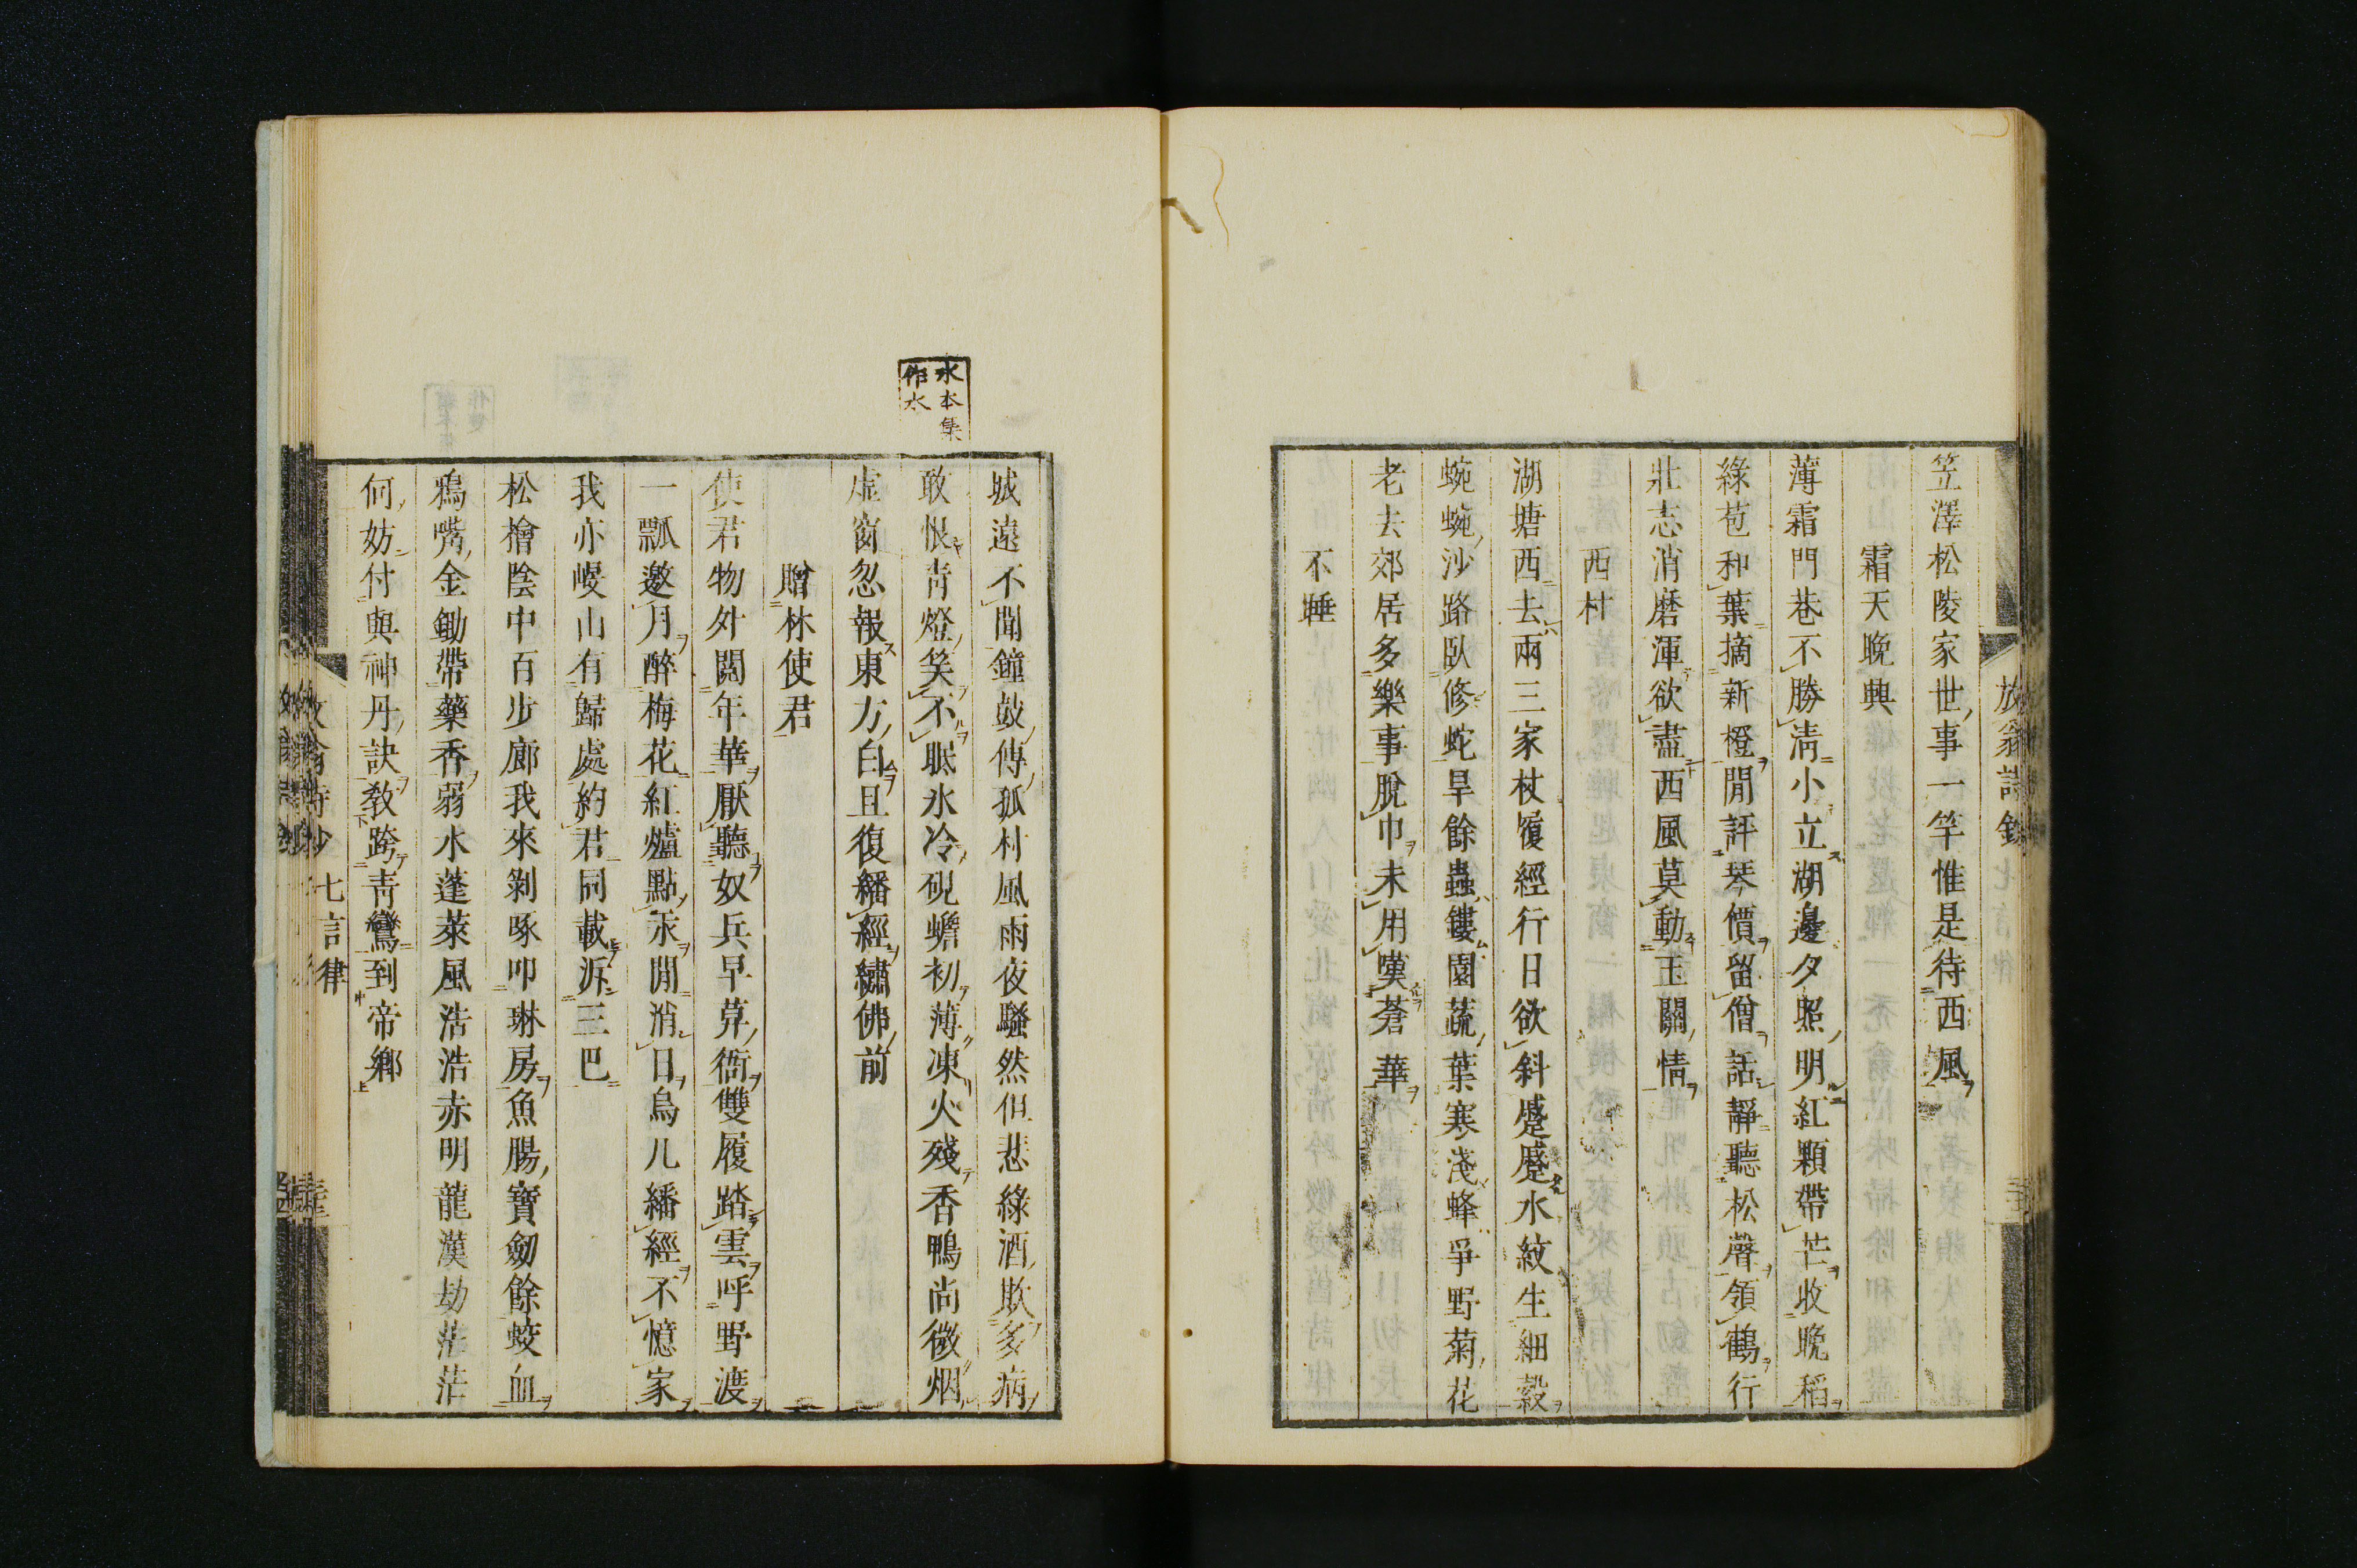 笠澤松陵家世事一竿惟是待西風
霜天晚興
薄霜門巷不勝淸小立湖邊夕照明紅顆帶芒收晚稻
綠苞和葉摘新橙閒評琴價留僧話靜聽松聲領鶴行
壯志消磨渾欲盡西風莫動玉關情
西村
湖塘西去兩三家杖履經行日欲斜蹙蹙水紋生細縠
蜿蜿沙路臥修蛇旱餘蟲鏤園蔬葉寒淺蜂爭野菊花
老去郊居多樂事脫巾未用嘆蒼華
不睡
城遠不聞鐘鼓傳孤村風雨夜騷然但悲綠酒欺多病
敢恨靑燈笑不眠氷冷硯蟾初薄凍火殘香鴨尚微烟
虛窗忽報東方白且復繙經繡佛前
氷本集
作水
贈林使君
使君物外閱年華厭聽奴兵早莫衙雙履踏雲呼野渡
一瓢邀月醉梅花紅爐點汞閒消日烏几繙經不憶家
我亦峴山有歸處約君同載泝三巴
松檜陰中百步廊我來剝啄叩琳房魚腸寶劒餘蛟血
鴉嘴金鋤帶藥香弱水蓬萊風浩浩赤明龍漢劫茫茫
何妨付與神丹訣敎跨靑鸞到帝鄕
七言律